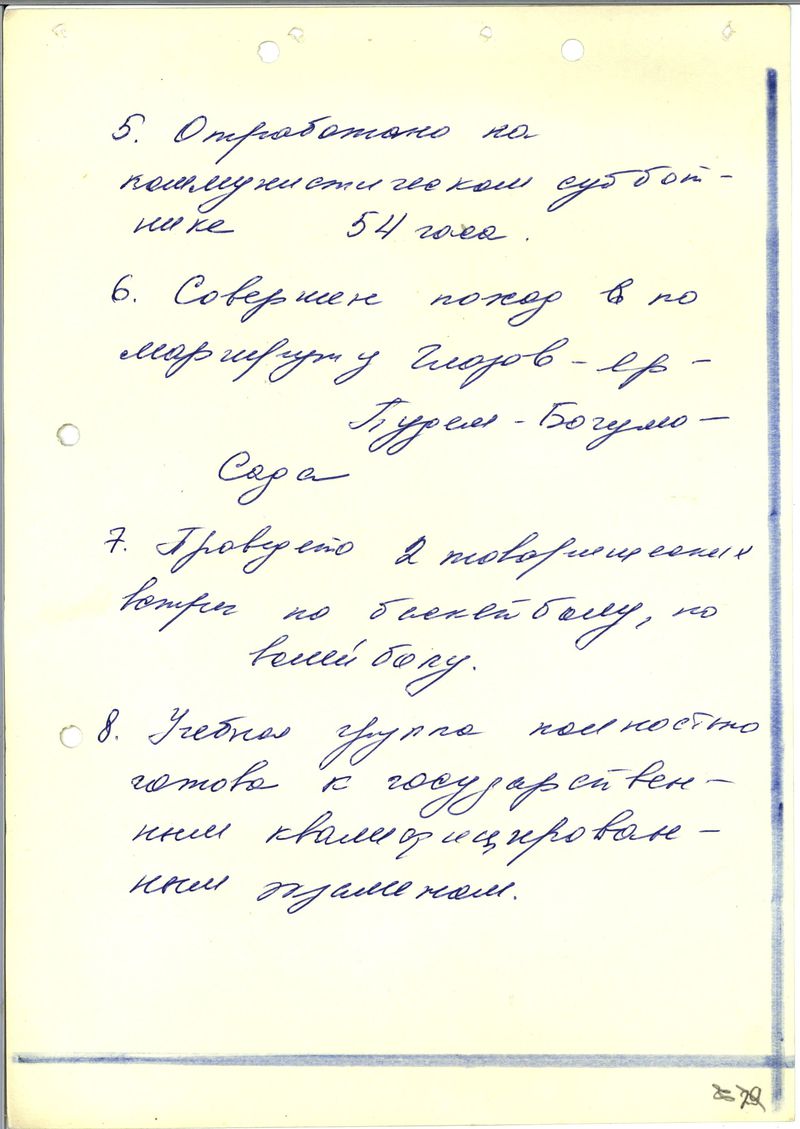 5. Отработано на
коммунистическом суббот-
нике 54 часа.
6. Совершен поход в по
маршруту Глазов - Яр -
Пудем - Богумо -
Сада
7. Проведено 2 товарищеских
встреч по баскетболу, по
волейболу.
8. Учебная группа полностью
готова к государствен-
ным квалифицирован-
ным экзаменам.